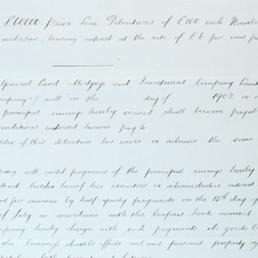 £10000 Prior Lien Debentures of £100 each Numbe
inclusive, bearing interest at the rate of £6 per cent per
General Land Mortgage and Investment Company Limi
ompany") will on the day of 1902 or
principal moneys hereby secured shall become payabl
onditions endorsed hereon pay to
older of this debenture
will until payment of the principal moneys hereby
holder hereof his executors or administrators interest
cent per annum by half yearly payments on the 15th day of
of July in accordance with the coupons
mpany hereby charges with such payments its goods
the effects and real personal property